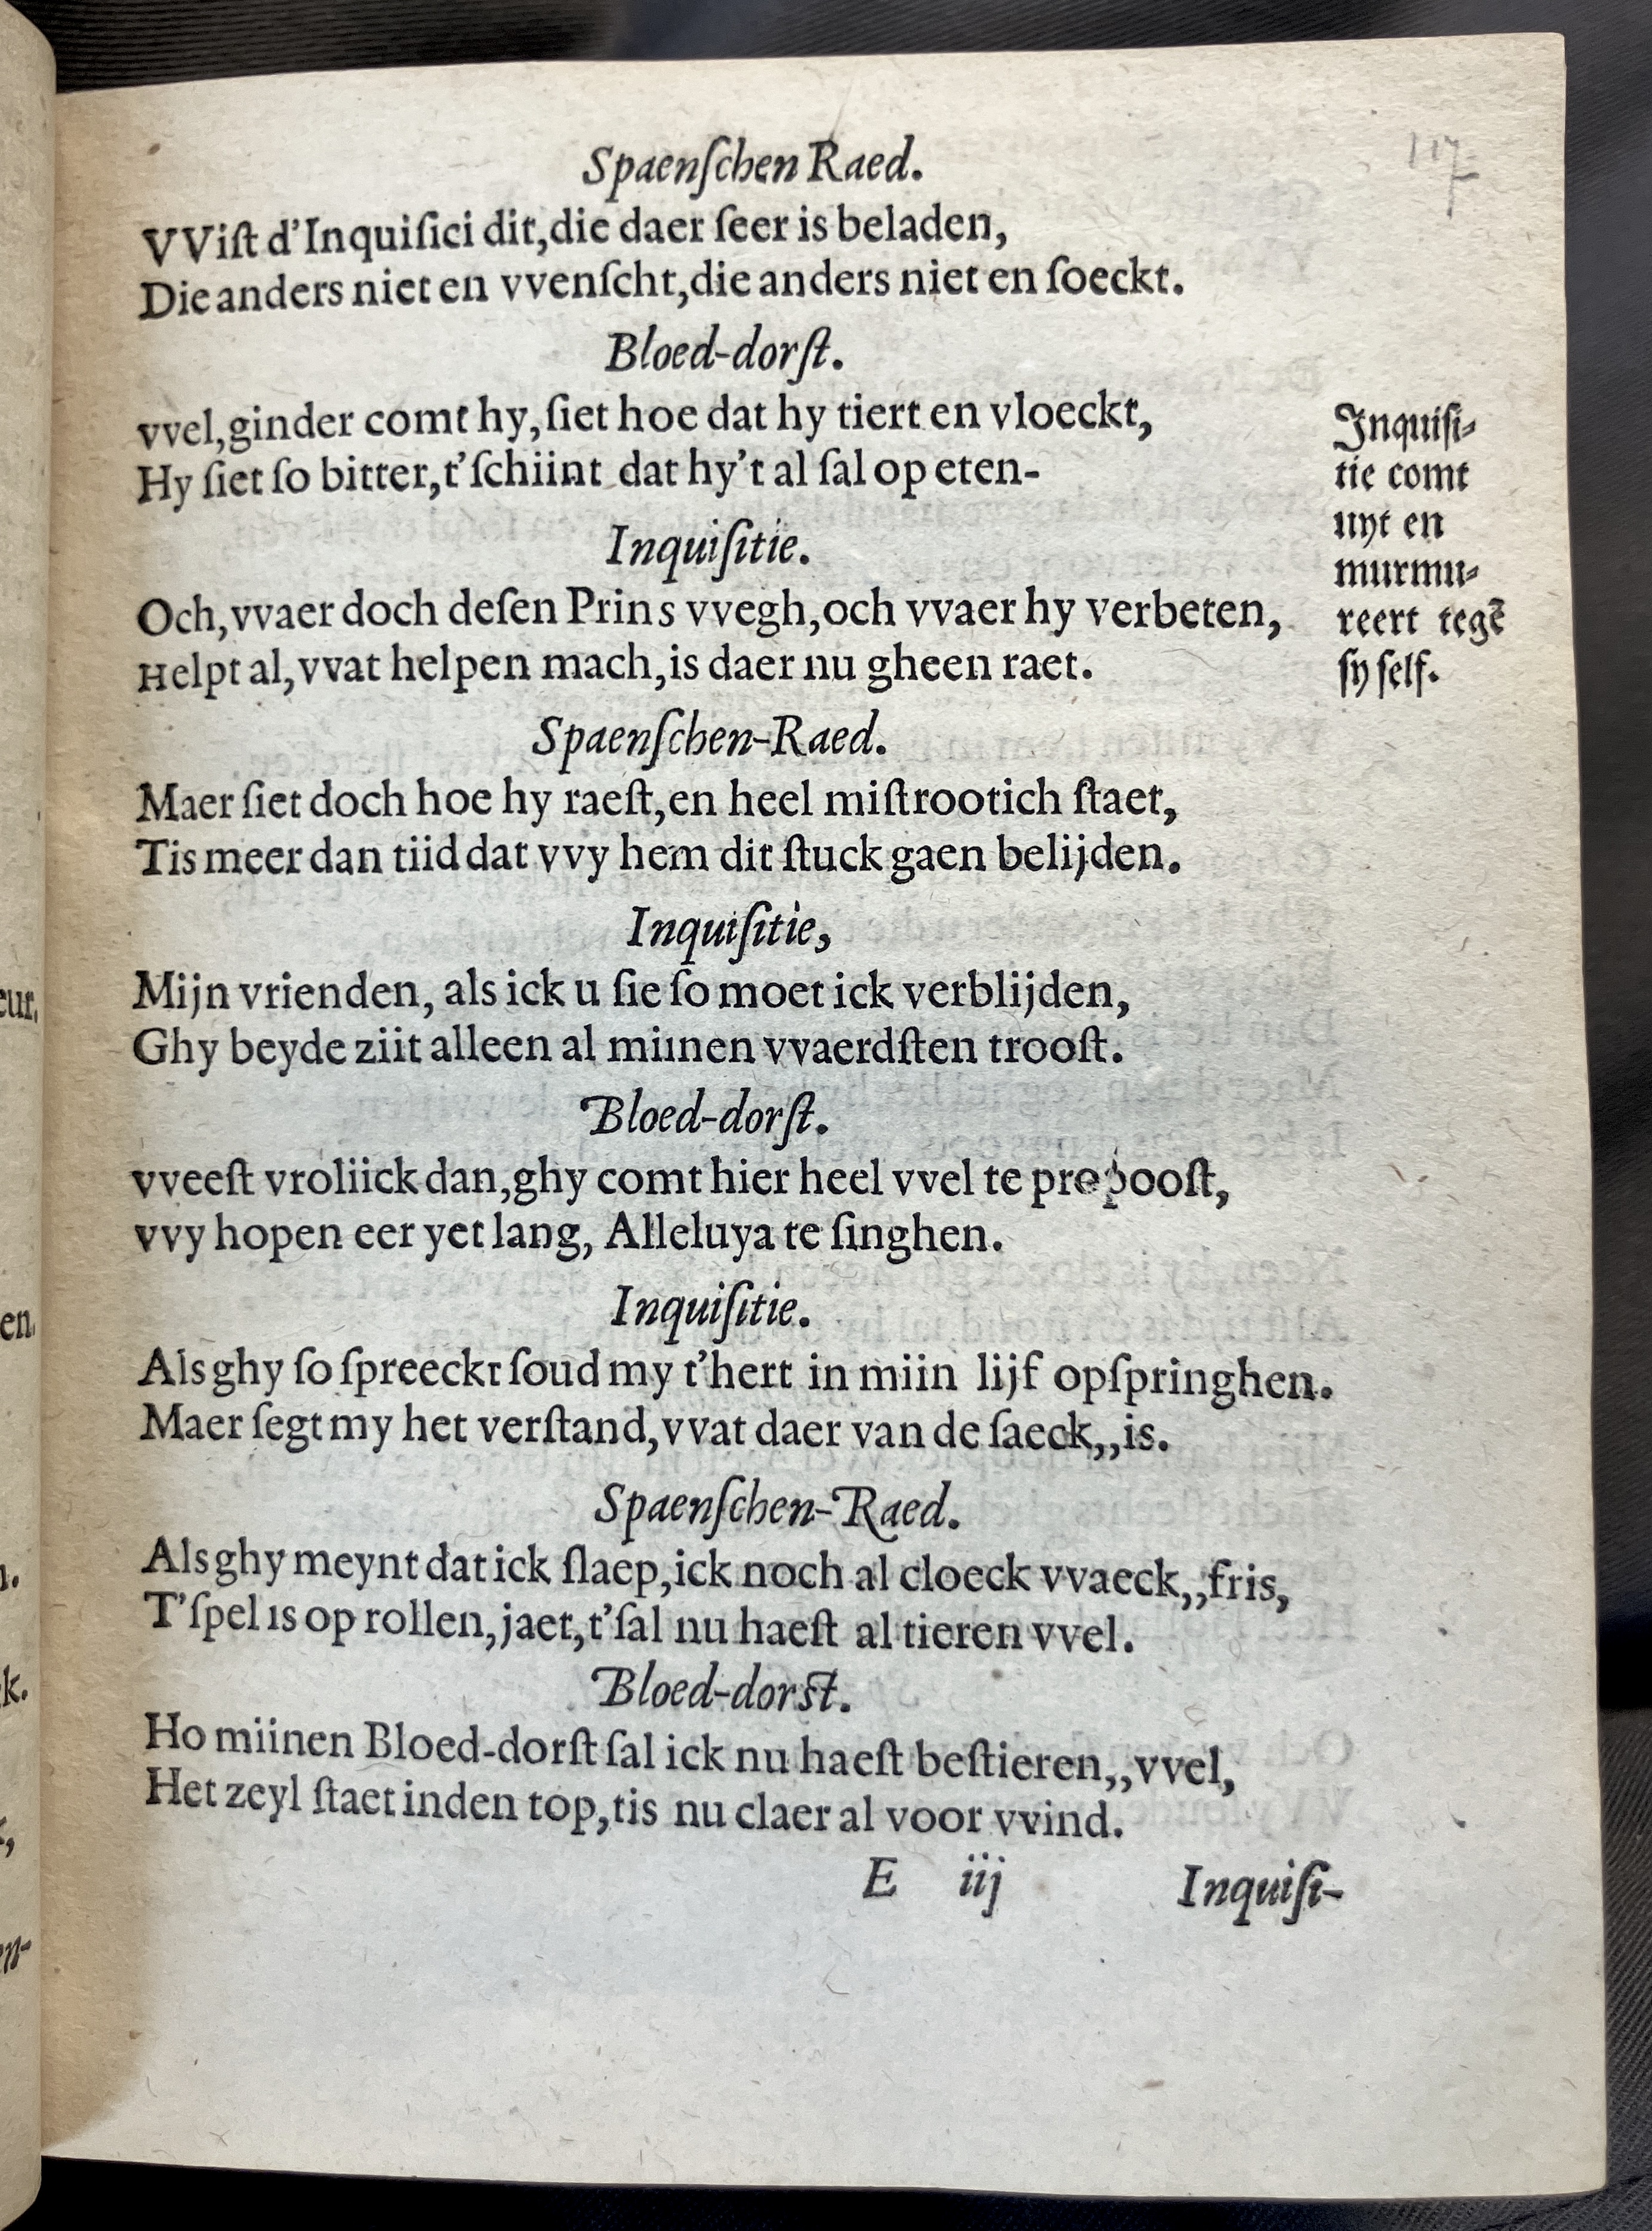 Spaenſchen Raed.
VViſt d'Inquiſici dit,die daer ſeer is beladen,
Die anders niet en vvenſcht,die anders niet en ſoeckt.
Bloed-dorſt.
vvel,ginder comt hy,ſiet hoe dat hy tiert en vloeckt,
Hy ſiet ſo bitter,t'ſchiint dat hy't al ſal op eten-
Inquiſitie.
Och,vvaer doch deſen Prins vvegh,och vvaer hy verbeten,
Helpt al,vvat helpen mach,is daer nu gheen raet.
Inquiſi-
tie comt
uyt en
murmu-
reert tegẽ
ſy ſelf.
Spaenſchen-Raed.
Maer ſiet doch hoe hy raeſt,en heel miſtrootich ſtaet,
Tis meer dan tiid dat vvy hem dit ſtuck gaen belijden.
Inquiſitie,
Mijn vrienden, als ick u ſie ſo moet ick verblijden,
Ghy beyde ziit alleen al miinen vvaerdſten trooſt.
Bloed-dorſt.
vveeſt vroliick dan,ghy comt hier heel vvel te propooſt,
vvy hopen eer yet lang, Alleluya te ſinghen.
Inquiſitie.
Als ghy ſo ſpreeckt ſoud my t'hert in miin lijf opſpringhen.
Maer ſegt my het verſtand,vvat daer van de ſaeck,,is.
Spaenſchen-Raed.
Als ghy meynt dat ick ſlaep,ick noch al cloeck vvaeck,,fris,
T'ſpel is op rollen,jaet,t'ſal nu haeſt al tieren vvel.
Bloed-dorſt.
Ho miinen Bloed-dorſt ſal ick nu haeſt beſtieren,,vvel,
Het zeyl ſtaet inden top,tis nu claer al voor vvind.
E iij
Inquiſi-